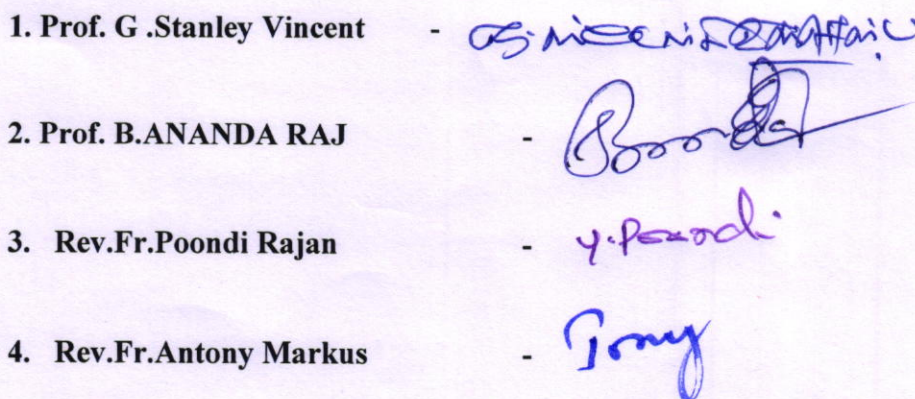 1. Prof. G .Stanley Vincent -
2. Prof. B.ANANDA RAJ -
3. Rev.Fr.Poondi Rajan - y.Poondi
4. Rev.Fr.Antony Markus - Tony